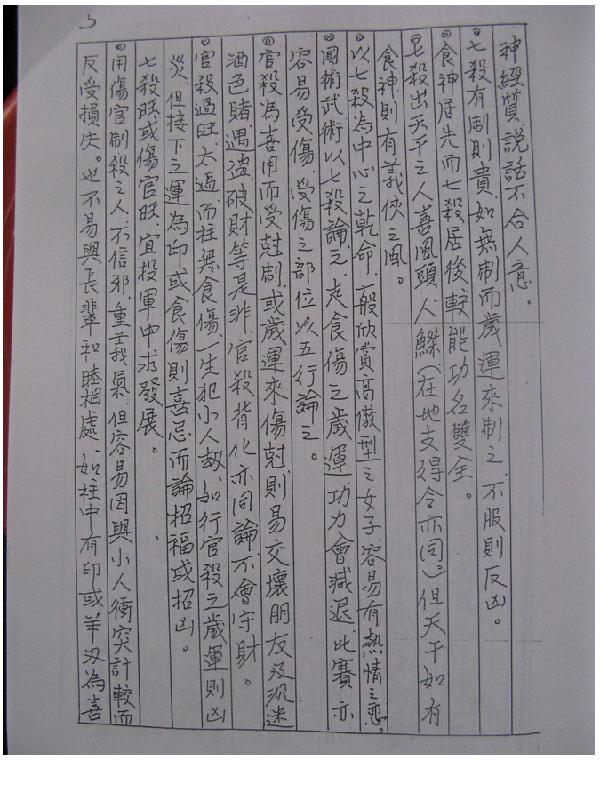 神經質,說話不合人意。
◎七殺有制則貴,如無制而歲運來制之,不服則反凶。
◎食神居先而七殺居後,較能功名雙全。
◎七殺出天干之人,喜風頭人緣(在地支得令亦同),但天干如有
食神則有義俠之風。
◎以七殺為中心之乾命,一般欣賞高傲型之女子,容易有熱情之戀。
◎國術武術以七殺論之,走食傷之歲運,功力會減退,比賽亦
容易受傷,受傷之部位以五行論之。
◎官殺為喜用而受尅制,或歲運來傷尅,則易交壞朋友及沉迷
酒色賭遇盜破財等,其非官殺背化亦同論,不會守財。
◎官殺過旺,太過而柱無食傷一生犯小人劫,如行官殺之歲運則凶
災,但接下之運為印或食傷則喜忌而論招福或招凶。
◎七殺旺或傷官旺,宜投軍中求發展。
◎用傷官制殺之人,不信邪,重義氣,但容易因與小人衝突計較而
反受損失。也不易與長輩和睦相處,如柱中有印或羊刃為喜